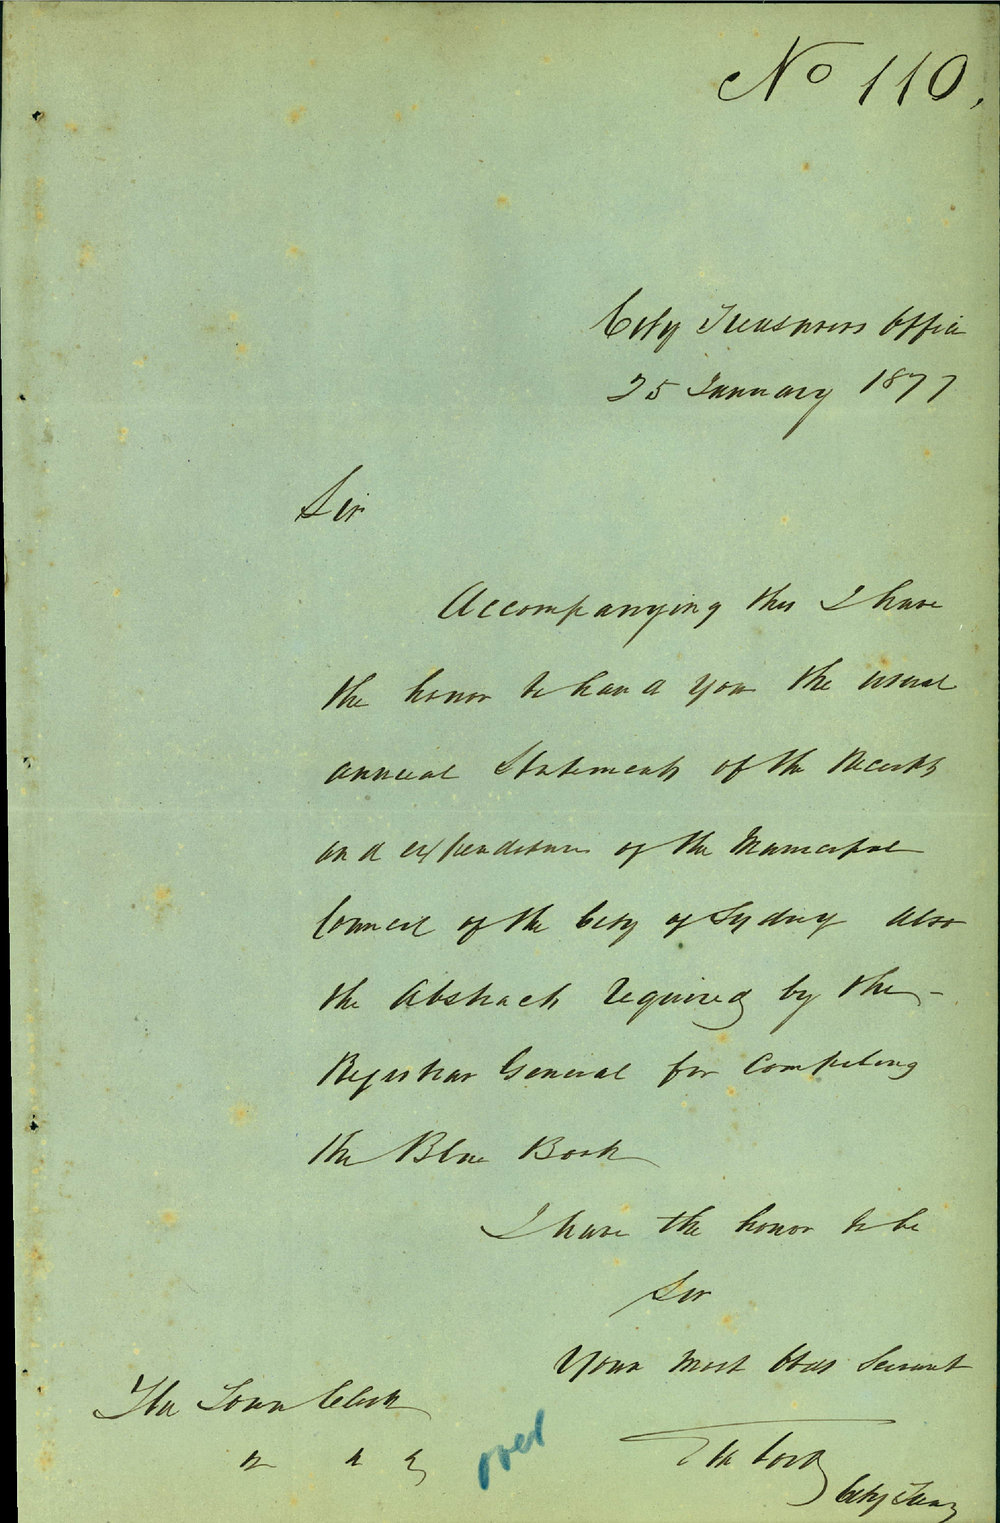 No 110.
City Treasurers Office
25 January 1877
Sir
Accompanying this I have
the honor to hand you the usual
annual Statements of the Receipts
and expenditure of the Municipal
Council of the City of Sydney also
the Abstracts required by the
Registrar General for Compiling
the Blue Book
I have the honor to be
Sir
Your most Obdt Servant
The Town Clerk
over
City Treas